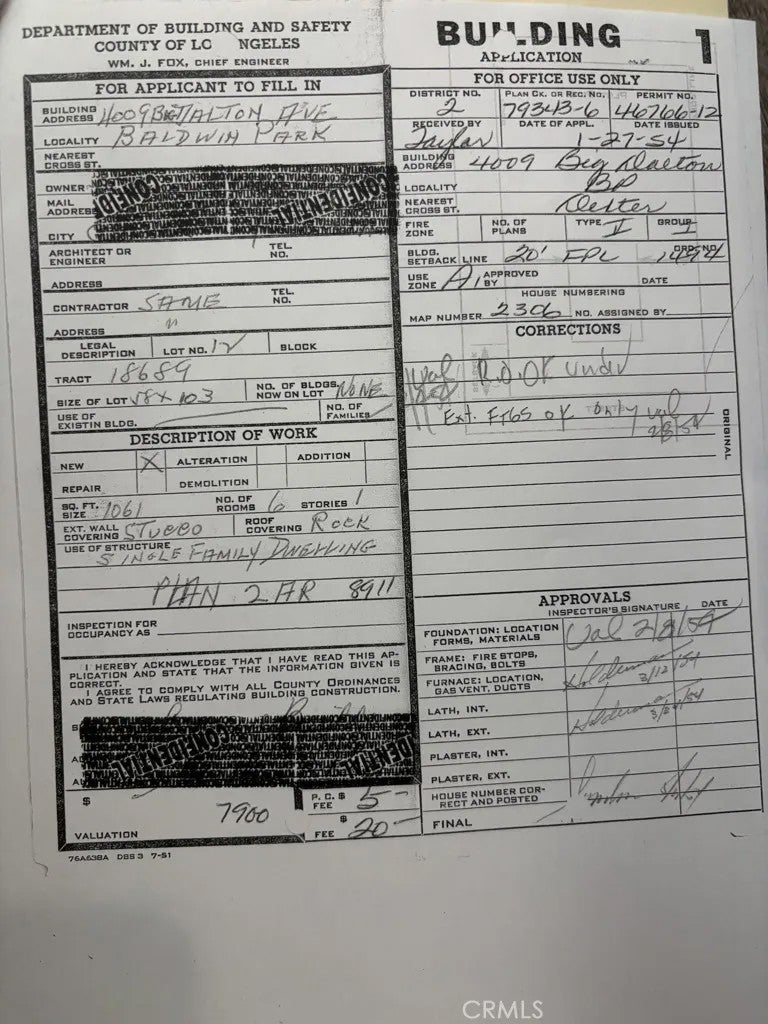 DEPARTMENT OF BUILDING AND SAFETY
COUNTY OF LO NGELES
WM. J. FOX, CHIEF ENGINEER
FOR APPLICANT TO FILL IN
BUILDING ADDRESS 4009 DALTON AVE
LOCALITY BALDWIN PARK
NEAREST CROSS ST.
OWNER
MAIL ADDRESS
CONFIDENTIAL
CITY
ARCHITECT OR ENGINEER
TEL. NO.
ADDRESS
CONTRACTOR SAME
TEL. NO.
ADDRESS "
LEGAL DESCRIPTION LOT NO. 12 BLOCK
TRACT 18689
SIZE OF LOT 58 x 103 NO. OF BLDGS. NOW ON LOT NONE
USE OF EXISTIN BLDG. NO. OF FAMILIES
DESCRIPTION OF WORK
NEW X ALTERATION ADDITION
REPAIR DEMOLITION
SQ. FT. SIZE 1061 NO. OF ROOMS 6 STORIES 1
EXT. WALL COVERING STUCCO ROOF COVERING ROCK
USE OF STRUCTURE SINGLE FAMILY DWELLING
PLAN 2 AR 8911
INSPECTION FOR OCCUPANCY AS
I HEREBY ACKNOWLEDGE THAT I HAVE READ THIS AP-
PLICATION AND STATE THAT THE INFORMATION GIVEN IS
CORRECT.
I AGREE TO COMPLY WITH ALL COUNTY ORDINANCES
AND STATE LAWS REGULATING BUILDING CONSTRUCTION.
CONFIDENTIAL
$ 7900
VALUATION
P. C. FEE $ 5-
FEE $ 20-
76A638A DBS 3 7-51
BUILDING
APPLICATION
1
FOR OFFICE USE ONLY
DISTRICT NO. 2 PLAN CK. OR REC. NO. 79343-6 PERMIT NO. 46766-12
RECEIVED BY Taylor DATE OF APPL. 1-27-54 DATE ISSUED
BUILDING ADDRESS 4009 Big Dalton
LOCALITY BP
NEAREST CROSS ST.
FIRE ZONE NO. OF PLANS TYPE V GROUP I
BLDG. SETBACK LINE 20' FPL ORD. NO. 1494
USE ZONE A1 APPROVED BY DATE
HOUSE NUMBERING
MAP NUMBER 2306 NO. ASSIGNED BY
CORRECTIONS
OK under
Ext. Ftgs ok only 2/8/54
ORIGINAL
APPROVALS
INSPECTOR'S SIGNATURE DATE
FOUNDATION: LOCATION FORMS, MATERIALS Val 2/8/54
FRAME: FIRE STOPS, BRACING, BOLTS 3/12/54
FURNACE: LOCATION, GAS VENT, DUCTS
LATH, INT.
LATH, EXT.
PLASTER, INT.
PLASTER, EXT.
HOUSE NUMBER COR-
RECT AND POSTED
FINAL
CRMLS